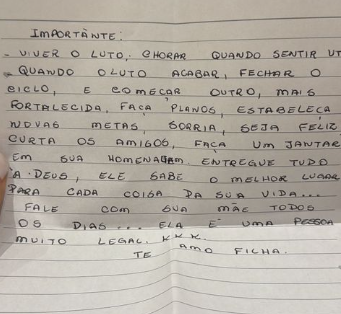 IMPORTANTE:
- VIVER O LUTO, CHORAR QUANDO SENTIR VT
- QUANDO O LUTO ACABAR, FECHAR O
CICLO, E COMEÇAR OUTRO, MAIS
FORTALECIDA, FAÇA PLANOS, ESTABELEÇA
NOVAS METAS, SORRIA, SEJA FELIZ,
CURTA OS AMIGOS, FAÇA UM JANTAR
EM SUA HOMENAGEM. ENTREGUE TUDO
A DEUS, ELE SABE O MELHOR LUGAR
PARA CADA COISA DA SUA VIDA...
FALE COM SUA MÃE TODOS
OS DIAS... ELA É UMA PESSOA
MUITO LEGAL. KKK.
TE AMO FILHA.